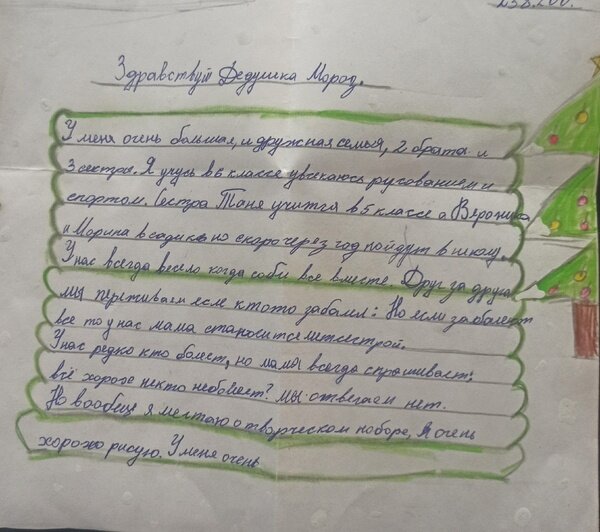 Здравствуй Дедушка Мороз.
У меня очень большая, и дружная семья, 2 брата и
3 сестры. Я учусь в 6 классе увлекаюсь рисованием и
спортом. Сестра Таня учится в 5 классе а Вероника
и Марина в садике но скоро через год пойдут в школу.
У нас всегда весело когда соби все вместе. Друг за друга
мы переживаем если ктото забалел: Но если заболеет
все то у нас мама становится метсестрой.
У нас редко кто болеет, но мама всегда спрашивает;
всё хорошо некто неболеет? мы отвечаем нет.
Но вообще я мечтаю о творческом наборе, я очень
хорошо рисую. У меня очень